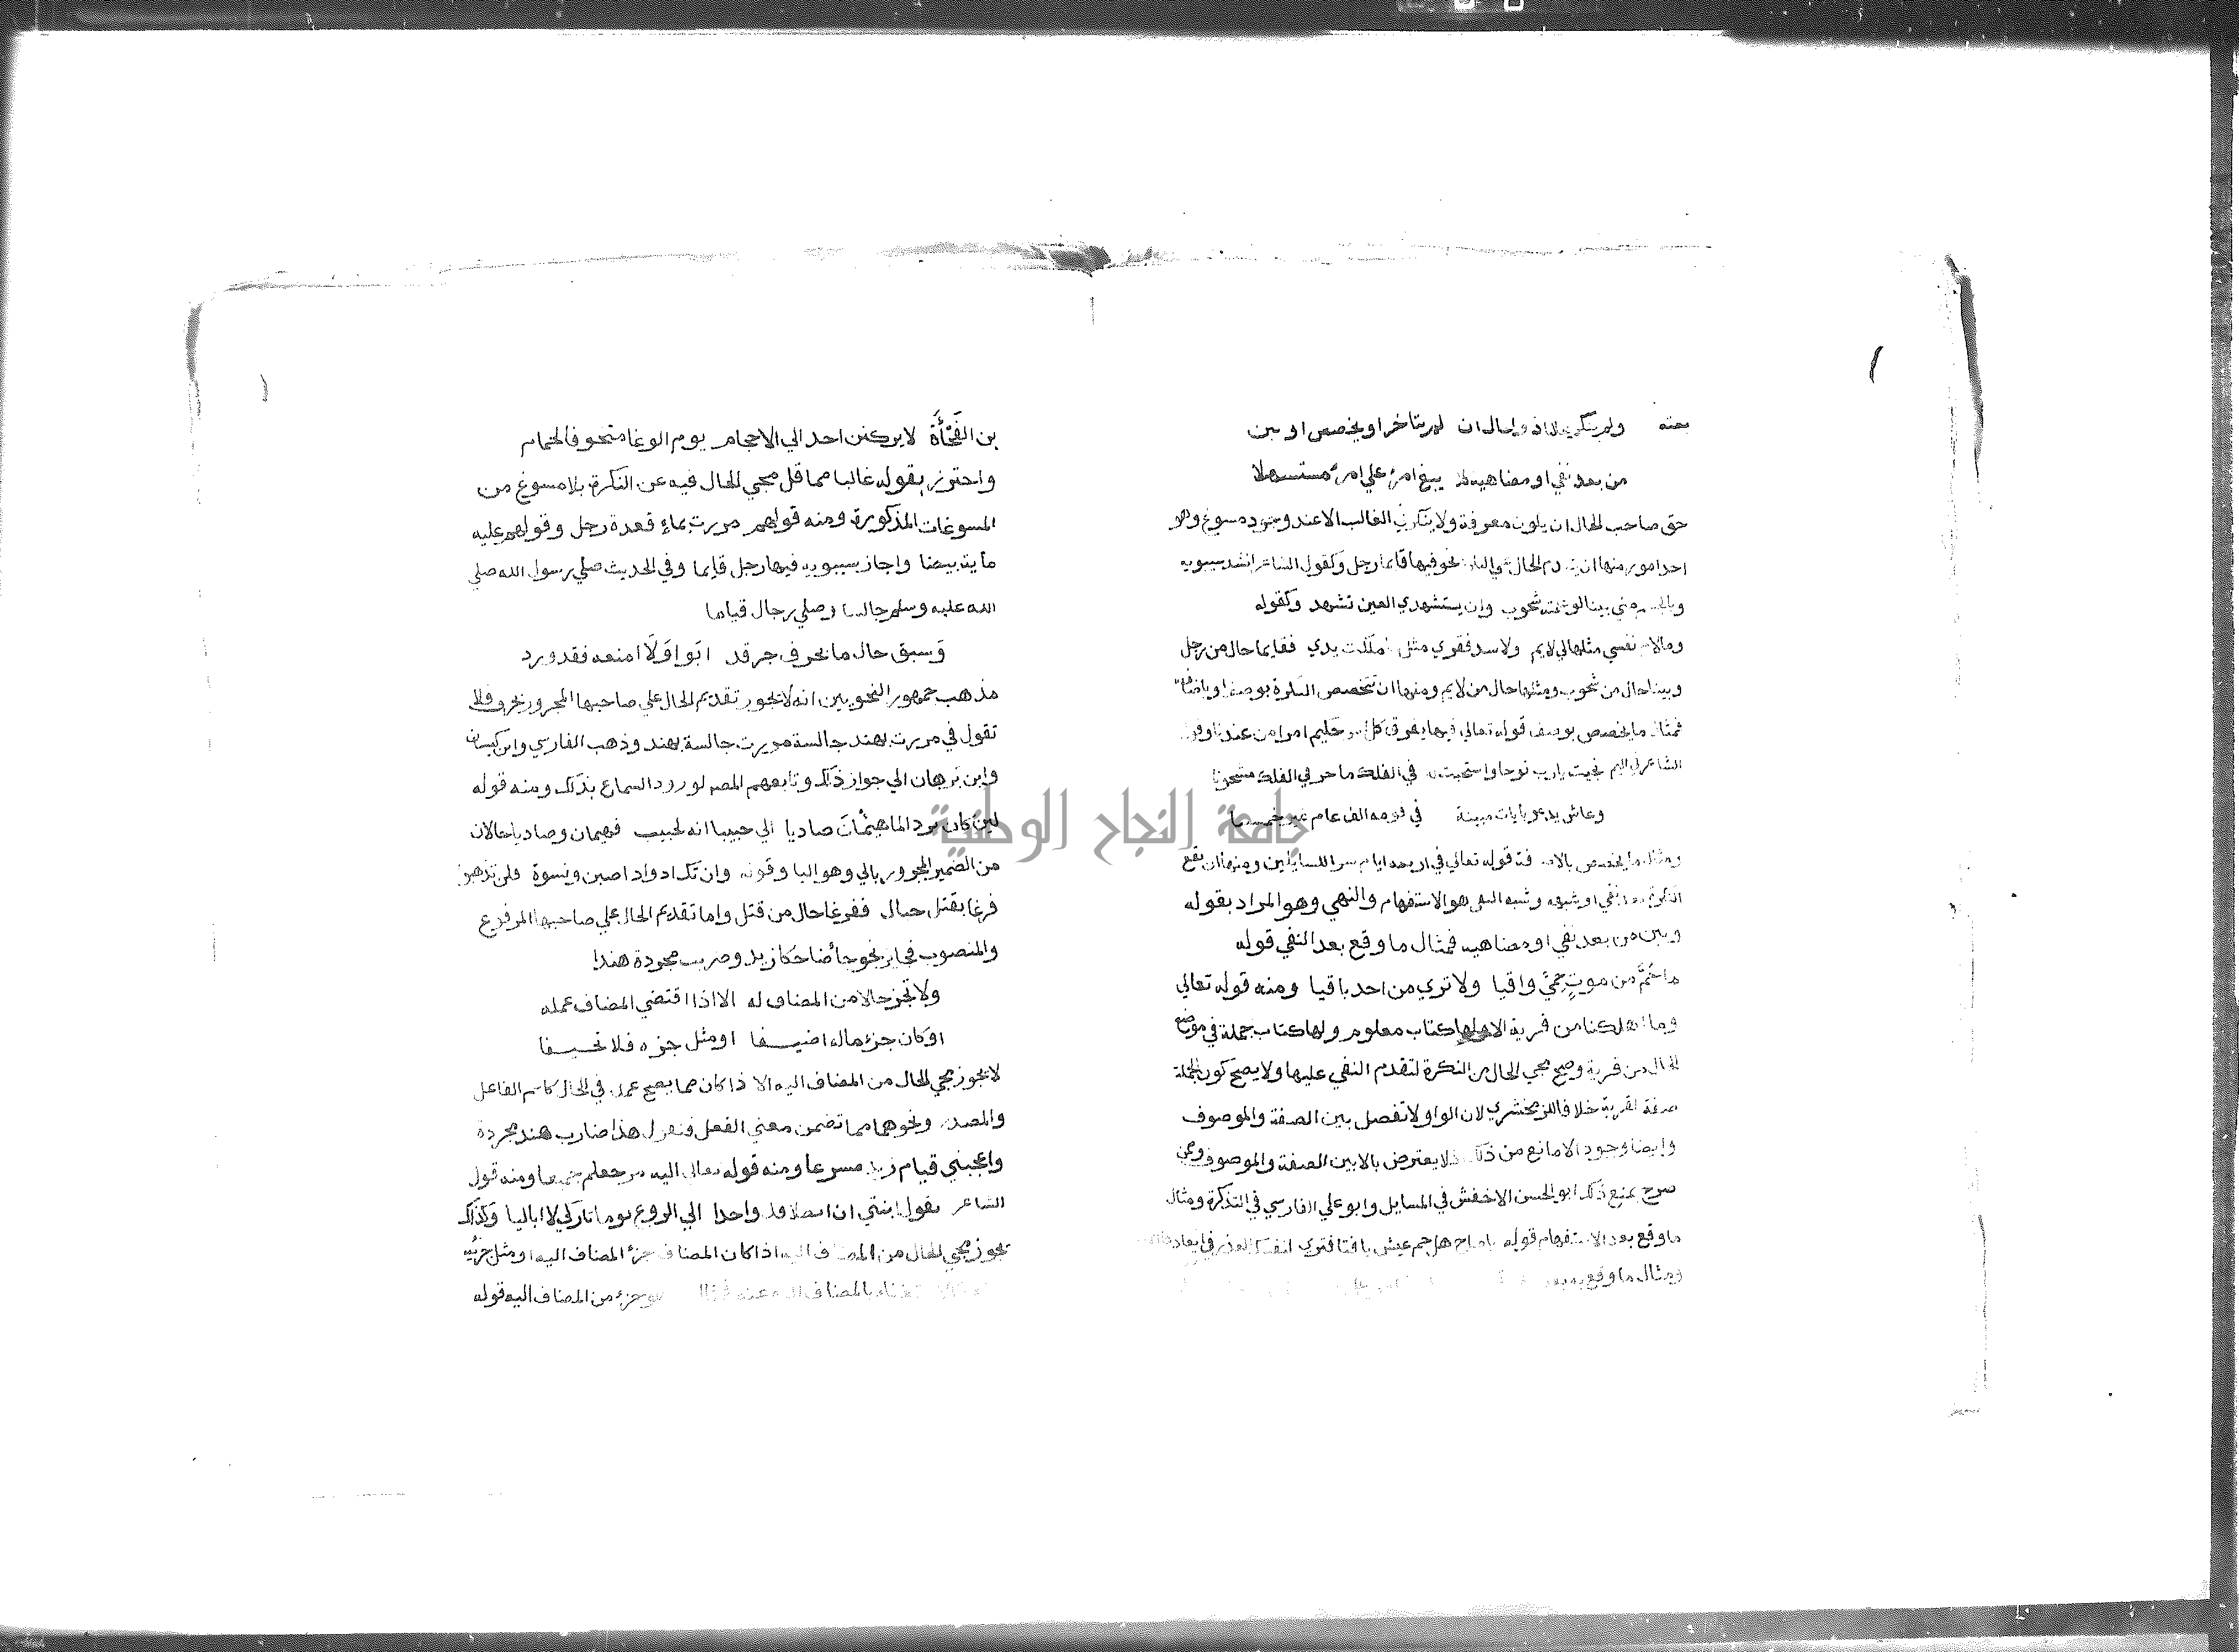 بغتة ولم ينكر غالبا ذو الحال ان لم يتاخر او يخصص او يبن
من بعد نفي او مضاهيه كلا يبغ امرؤ علي امرئ مستسهلا
حق صاحب الحال ان يكون معرفة ولا ينكر في الغالب الا عند وجود مسوغ وهو
احد امور منها ان يتقدم الحال علي النكرة نحو فيها قايما رجل وكقول الشاعر انشد سيبويه
وبالجسم مني بينا لو علمته شحوب وان يستشهدي العين تشهد وكقوله
وما لام نفسي مثلها لي لايم ولا سد فقري مثل ملكت يدي فقايما حال من رجل
وبينا حال من شحوب ومثلها حال من لايم ومنها ان تتخصص النكرة بوصف او باضافة
فمثال ما يخصص بوصف قوله تعالي فيها يفرق كل امر حكيم امرا من عندنا وقول
الشاعر نجيت يارب نوحا واستجبت له في الفلك ماخر في الفلك مشحونا
وعاش يدعو بايات مبينة في قومه الف عام غير خمسينا
ومثال ما يخصص بالاضافة قوله تعالي في اربعة ايام سوا للسايلين ومنها ان تقع
النكرة بعد نفي او شبهه وشبه النفي هو الاستفهام والنهي وهو المراد بقوله
وبين من بعد نفي او مضاهيه فمثال ما وقع بعد النفي قوله
ما حُمَّ من موتٍ حِميً واقيا ولا تري من احد باقيا ومنه قوله تعالي
وما اهلكنا من قرية الا ولها كتاب معلوم ولها كتاب جملة في موضع
الحال من قرية وصح مجي الحال من النكرة لتقدم النفي عليها ولا يصح كون الجملة
صفة لقرية خلافا للزمخشري لان الواو لا تفصل بين الصفة والموصوف
وايضا وجود الا مانع من ذلك فلا يعترض بالا بين الصفة والموصوف وممن
صرح بمنع ذلك ابو الحسن الاخفش في المسايل وابو علي الفارسي في التذكرة ومثال
ما وقع بعد الاستفهام قوله ياصاح هل حم عيش باقيا فتري لنفسك العذر في ابعاد
ومثال ما وقع بعد
بن الفَجْأَةَ لا يركنن احد الي الاحجام يوم الوغا متخوفا لحمام
واحترز بقوله غالبا مما قل مجي الحال فيه عن النكرة بلا مسوغ من
المسوغات المذكورة ومنه قولهم مررت بماء قعدة رجل وقولهم عليه
ماية بيضا واجاز سيبويه فيها رجل قايما وفي الحديث صلي رسول الله صلي
الله عليه وسلم جالسا وصلي رجال قياما
وسبق حال ما بحرف جر قد ابوا وَلَا امنعه فقد ورد
مذهب جمهور النحويين انه لا يجوز تقديم الحال علي صاحبها المجرور بحرف فلا
تقول في مررت بهند جالسة مررت جالسة بهند وذهب الفارسي وابن كيسان
وابن بَرهان الي جواز ذلك وتابعهم المصه لورود السماع بذلك ومنه قوله
لين كان برد الما هيمَانَ صاديا الي حبيبا انه لحبيب فهيمان وصاديا حالان
من الضمير المجرور بالي وهو اليا وقوله وان تك اذواد اصبن ونسوة فلن تذهبوا
فرغا بقتل حبال ففرغا حال من قتل واما تقديم الحال علي صاحبها المرفوع
والمنصوب فجايز نحو جا ضاحكا زيد وضربت مجردة هندا
ولا تجز حالا من المضاف له الا اذا اقتضي المضاف عمله
او كان جزء ماله اضيفا او مثل جزه فلا تحيفا
لا يجوز مجي الحال من المضاف اليه الا اذا كان مما يصح عمله في الحال كاسم الفاعل
والمصدر ونحوهما مما تضمن معني الفعل فتقول هذا ضارب هند مجردة
واعجبني قيام زيد مسرعا ومنه قوله تعالي اليه مرجعكم جميعا ومنه قول
الشاعر تقول ابنتي ان انطلاقك واحدا الي الروع يوما تاركي لا اباليا وكذلك
يجوز مجي الحال من المضاف اليه اذا كان المضاف جزء المضاف اليه او مثل جزئيه
بالمضاف اليه عنه فمثال هو جزء من المضاف اليه قوله
جامعة النجاح الوطنية